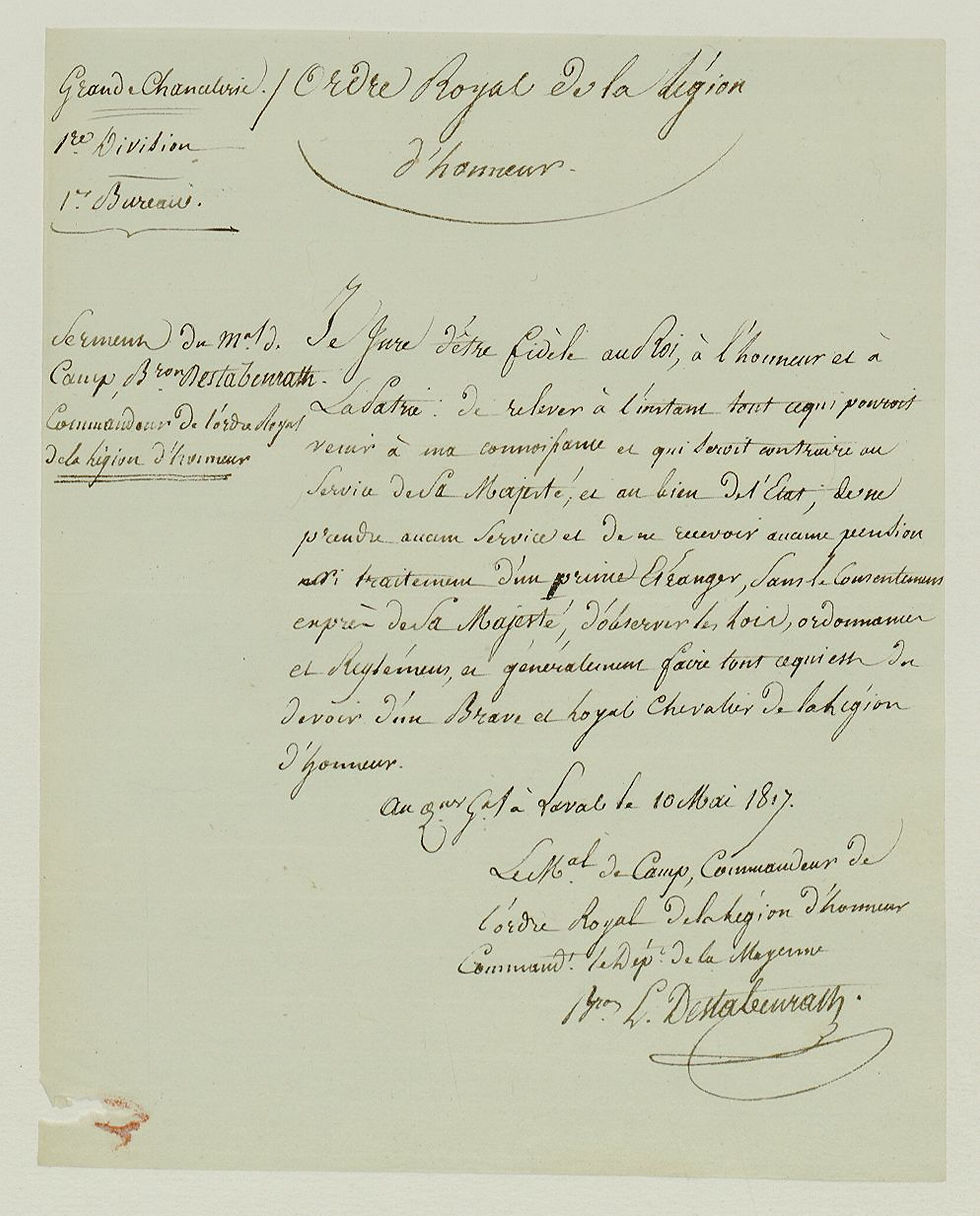 Grande Chancelerie. / Ordre Royal de la Légion
d'honneur.
1re Division
1er Bureau.
Serment du mal d.
Camp, Bron Destabenrath.
Commandeur de l'ordre Royal
de la Légion d'honneur
Je Jure d'être fidèle au Roi, à l'honneur et à
La Patrie. de relever à l'instant tout ce qui pourroit
venir à ma connoissance et qui seroit contraire au
Service de Sa Majesté, et au bien de l'Etat, de ne
prendre aucun Service et de ne recevoir aucune pension
ni traitement d'un prince Etranger, Sans le Consentement
exprès de Sa Majesté, d'observer les Lois, ordonnances
et Reglémens, et généralement faire tout ce qui est du
devoir d'un Brave et Loyal Chevalier de la Légion
d'honneur.
Au Qer Gal à Laval le 10 Mai 1817.
Le Mal de Camp, Commandeur de
l'ordre Royal de la Légion d'honneur
Commandt. le Dépt. de la Mayenne
Bron L. Destabenrath.